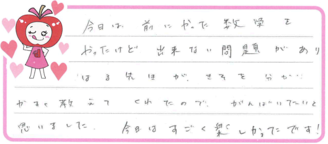 今日は前にやった数学を
やったけど出来ない問題があり
先生が、そこを分かり
やすく教えてくれたので、がんばりたいと
思いました。今日はすごく楽しかったです!